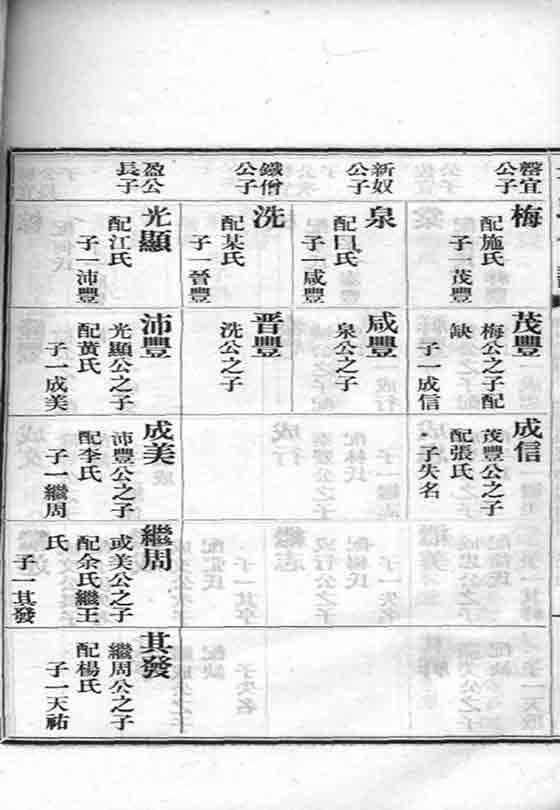 公子
梅
配施氏
子一茂豐
茂豐
梅公之子配
缺
子一成信
成信
茂豐公之子
配張氏
子失名
新奴
公子
泉
配囗氏
子一咸豐
咸豐
泉公之子
鐵僧
公子
洗
配某氏
子一晉豐
晋豐
洗公之子
盈公
長子
光顯
配江氏
子一沛豐
沛豐
光顯公之子
配黃氏
子一成美
成美
沛豐公之子
配李氏
子一繼周
繼周
或美公之子
配余氏繼王
氏
子一其發
其發
繼周公之子
配楊氏
子一天祐